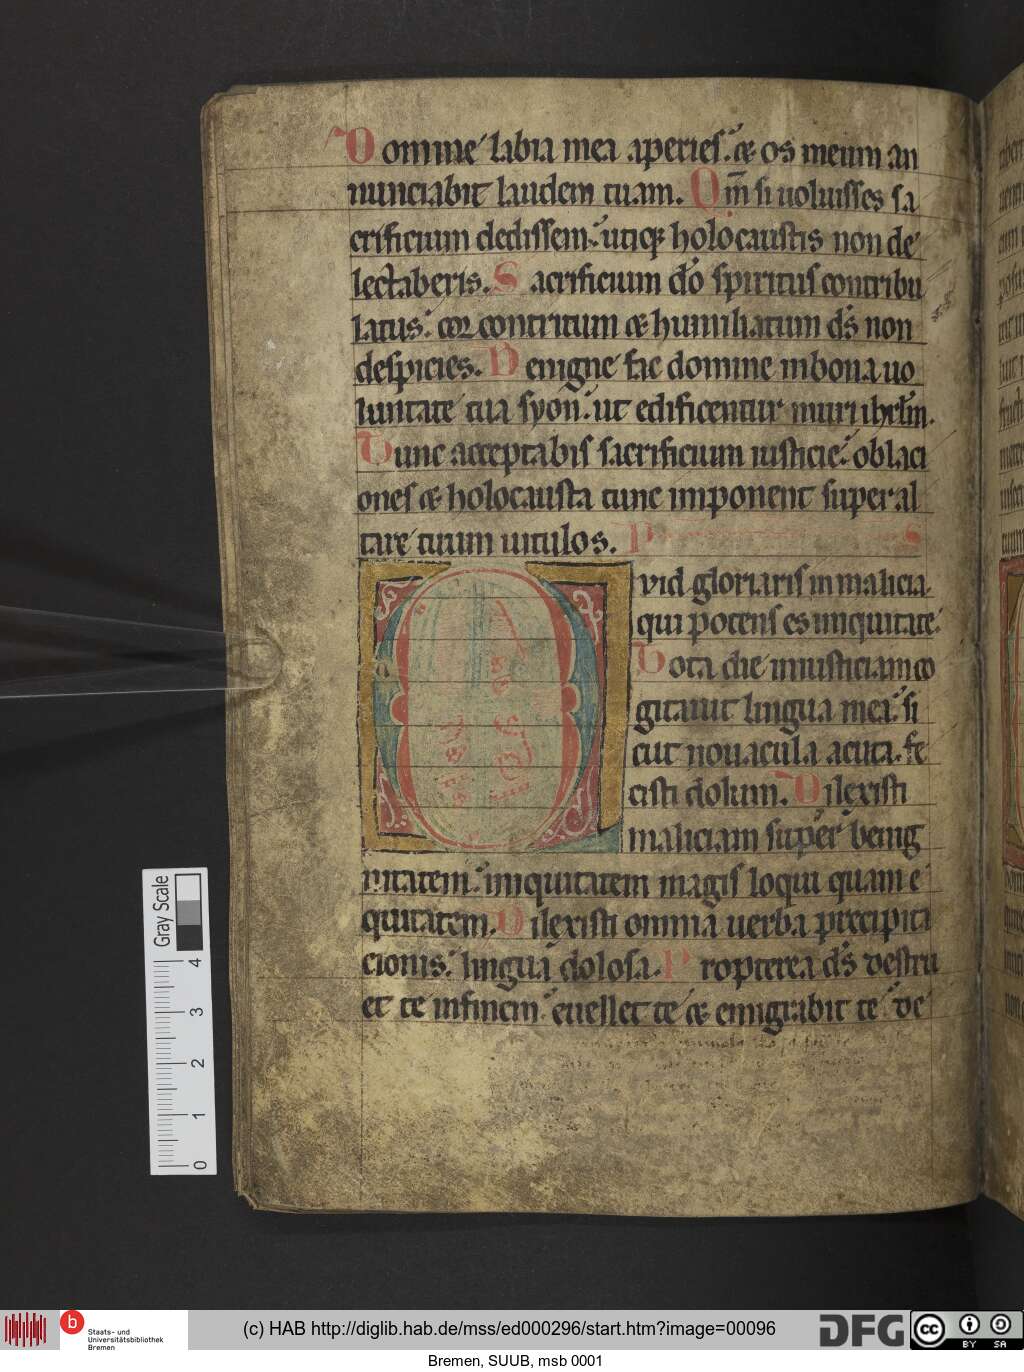 Domine labia mea aperies. & os meum an
nunciabit laudem tuam. Qm̄ si uoluisses sa
crificium dedissem. utiq; holocaustis non de
lectaberis. Sacrificium dō spiritus contribu
latus. cor contritum & humiliatum ds̄ non
despicies. Benigne fac domine in bona uo
luntate tua syon. ut edificentur muri ihrl̄m.
Tunc acceptabis sacrificium iusticie. oblaci
ones & holocausta tunc imponent super al
tare tuum uitulos.
Quid gloriaris in malicia.
qui potens es iniquitate.
Tota die iniusticiam co
gitauit lingua mea. si
cut nouacula acuta. fe
cisti dolum. Dilexisti
maliciam super benig
nitatem. iniquitatem magis loqui quam e
quitatem. Dilexisti omnia uerba precipita
cionis. lingua dolosa. Propterea ds̄ destru
et te in finem. euellet te & emigrabit te de
Gray Scale
4
3
2
1
0
b
Staats- und
Universitätsbibliothek
Bremen
(c) HAB http://diglib.hab.de/mss/ed000296/start.htm?image=00096
DFG
cc
BY SA
Bremen, SUUB, msb 0001